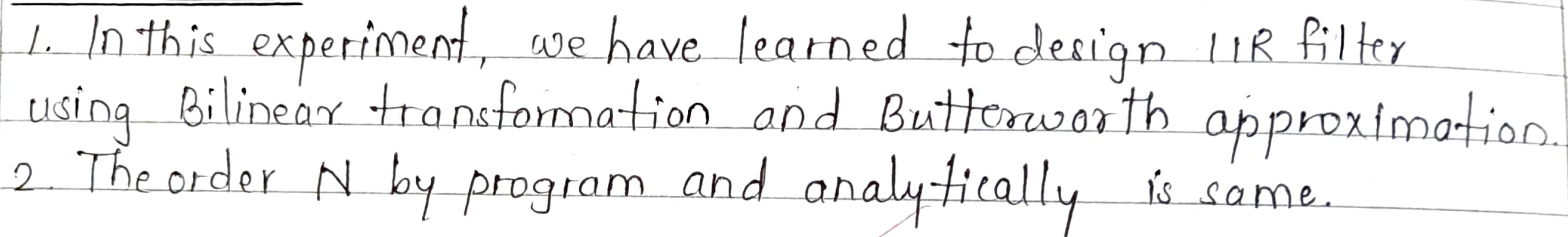 1. In this experiment, we have learned to design IIR filter
using Bilinear transformation and Butterworth approximation.
2. The order N by program and analytically is same.